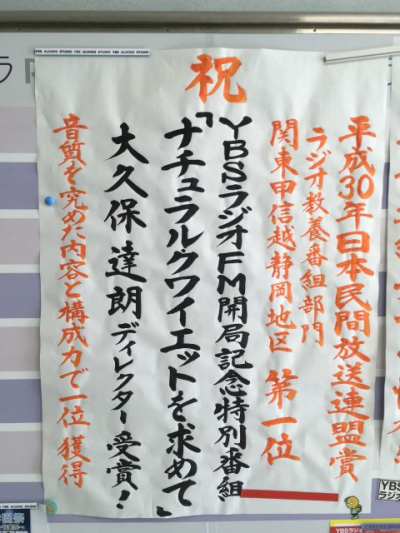 祝
平成30年日本民間放送連盟賞
ラジオ教養番組部門
関東甲信越静岡地区 第一位
YBSラジオFM開局記念特別番組
「ナチュラル・クワイエットを求めて」
大久保達朗ディレクター受賞！
音質を究めた内容と構成力で一位獲得
YBS
ラジオ